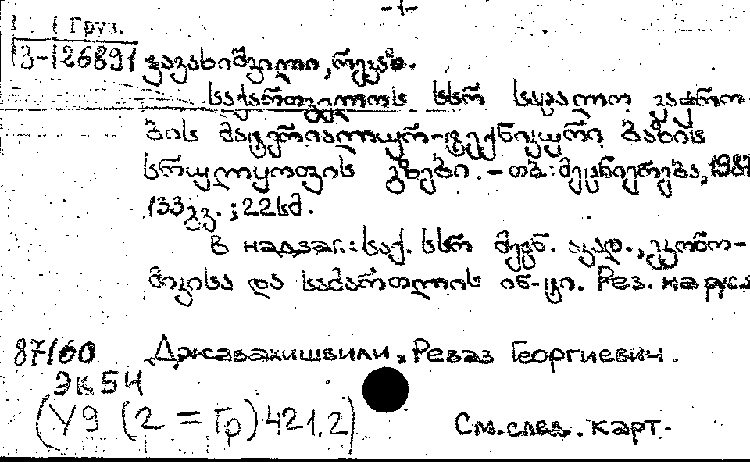 -1-
Груз.
3-26891 ჯავახიშვილი, რევაზ.
საქართველოს სსრ საგალო ვაჭრო-
ბის მატერიალურ-ტექნიკური ბაზის
სრულყოფის გზები. - თბ.: მეცნიერება, 198
133 გვ.; 22 სმ.
В надзаг.: საქ. სსრ მეცნ. აკად., ეკონო-
მიკისა და სამართლის ინ-ტი. Рез. на рус.
87/60 Джавахишвили, Реваз Георгиевич.
ЭКБЧ
(У9 (2 = Гр) 421.2)
См. след. карт.